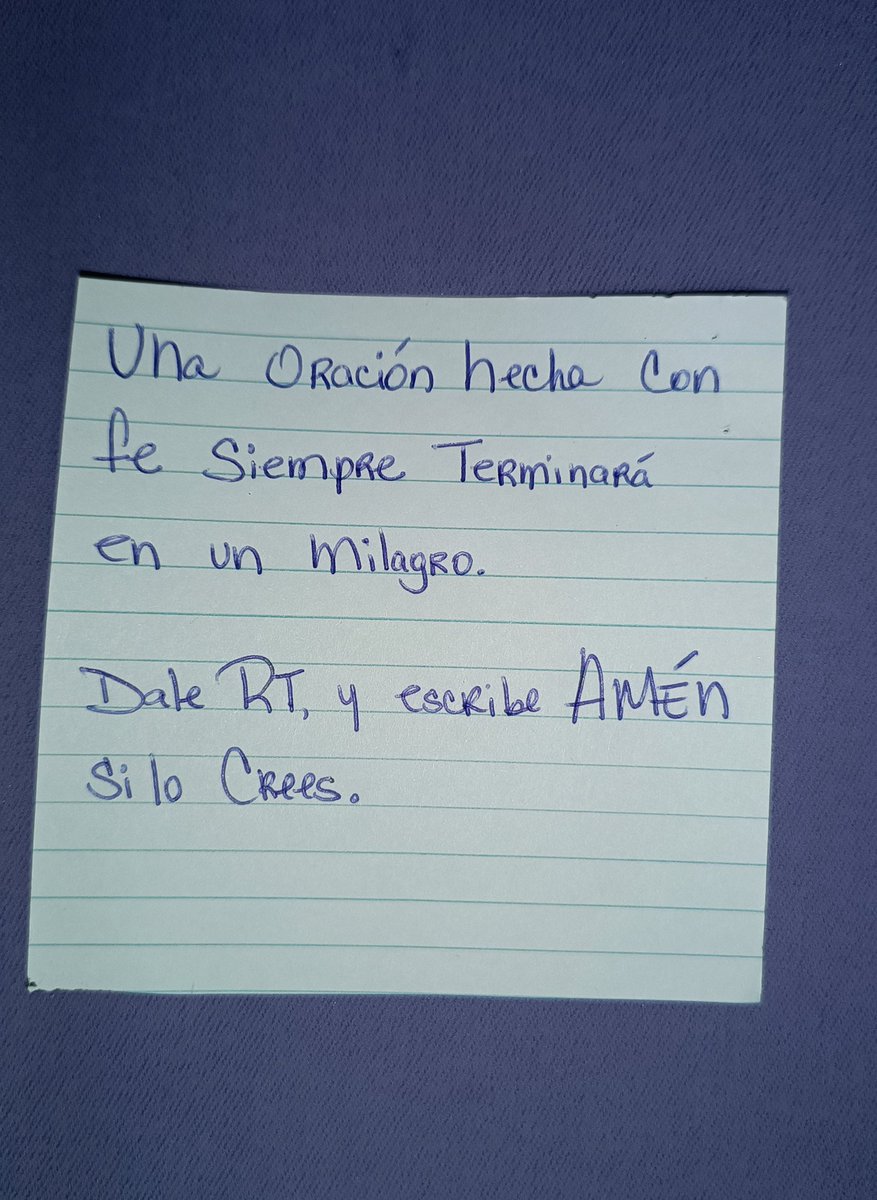 Una Oración hecha con
fe siempre Terminará
en un milagro.
Dale RT, y escribe AMÉN
Si lo Crees.